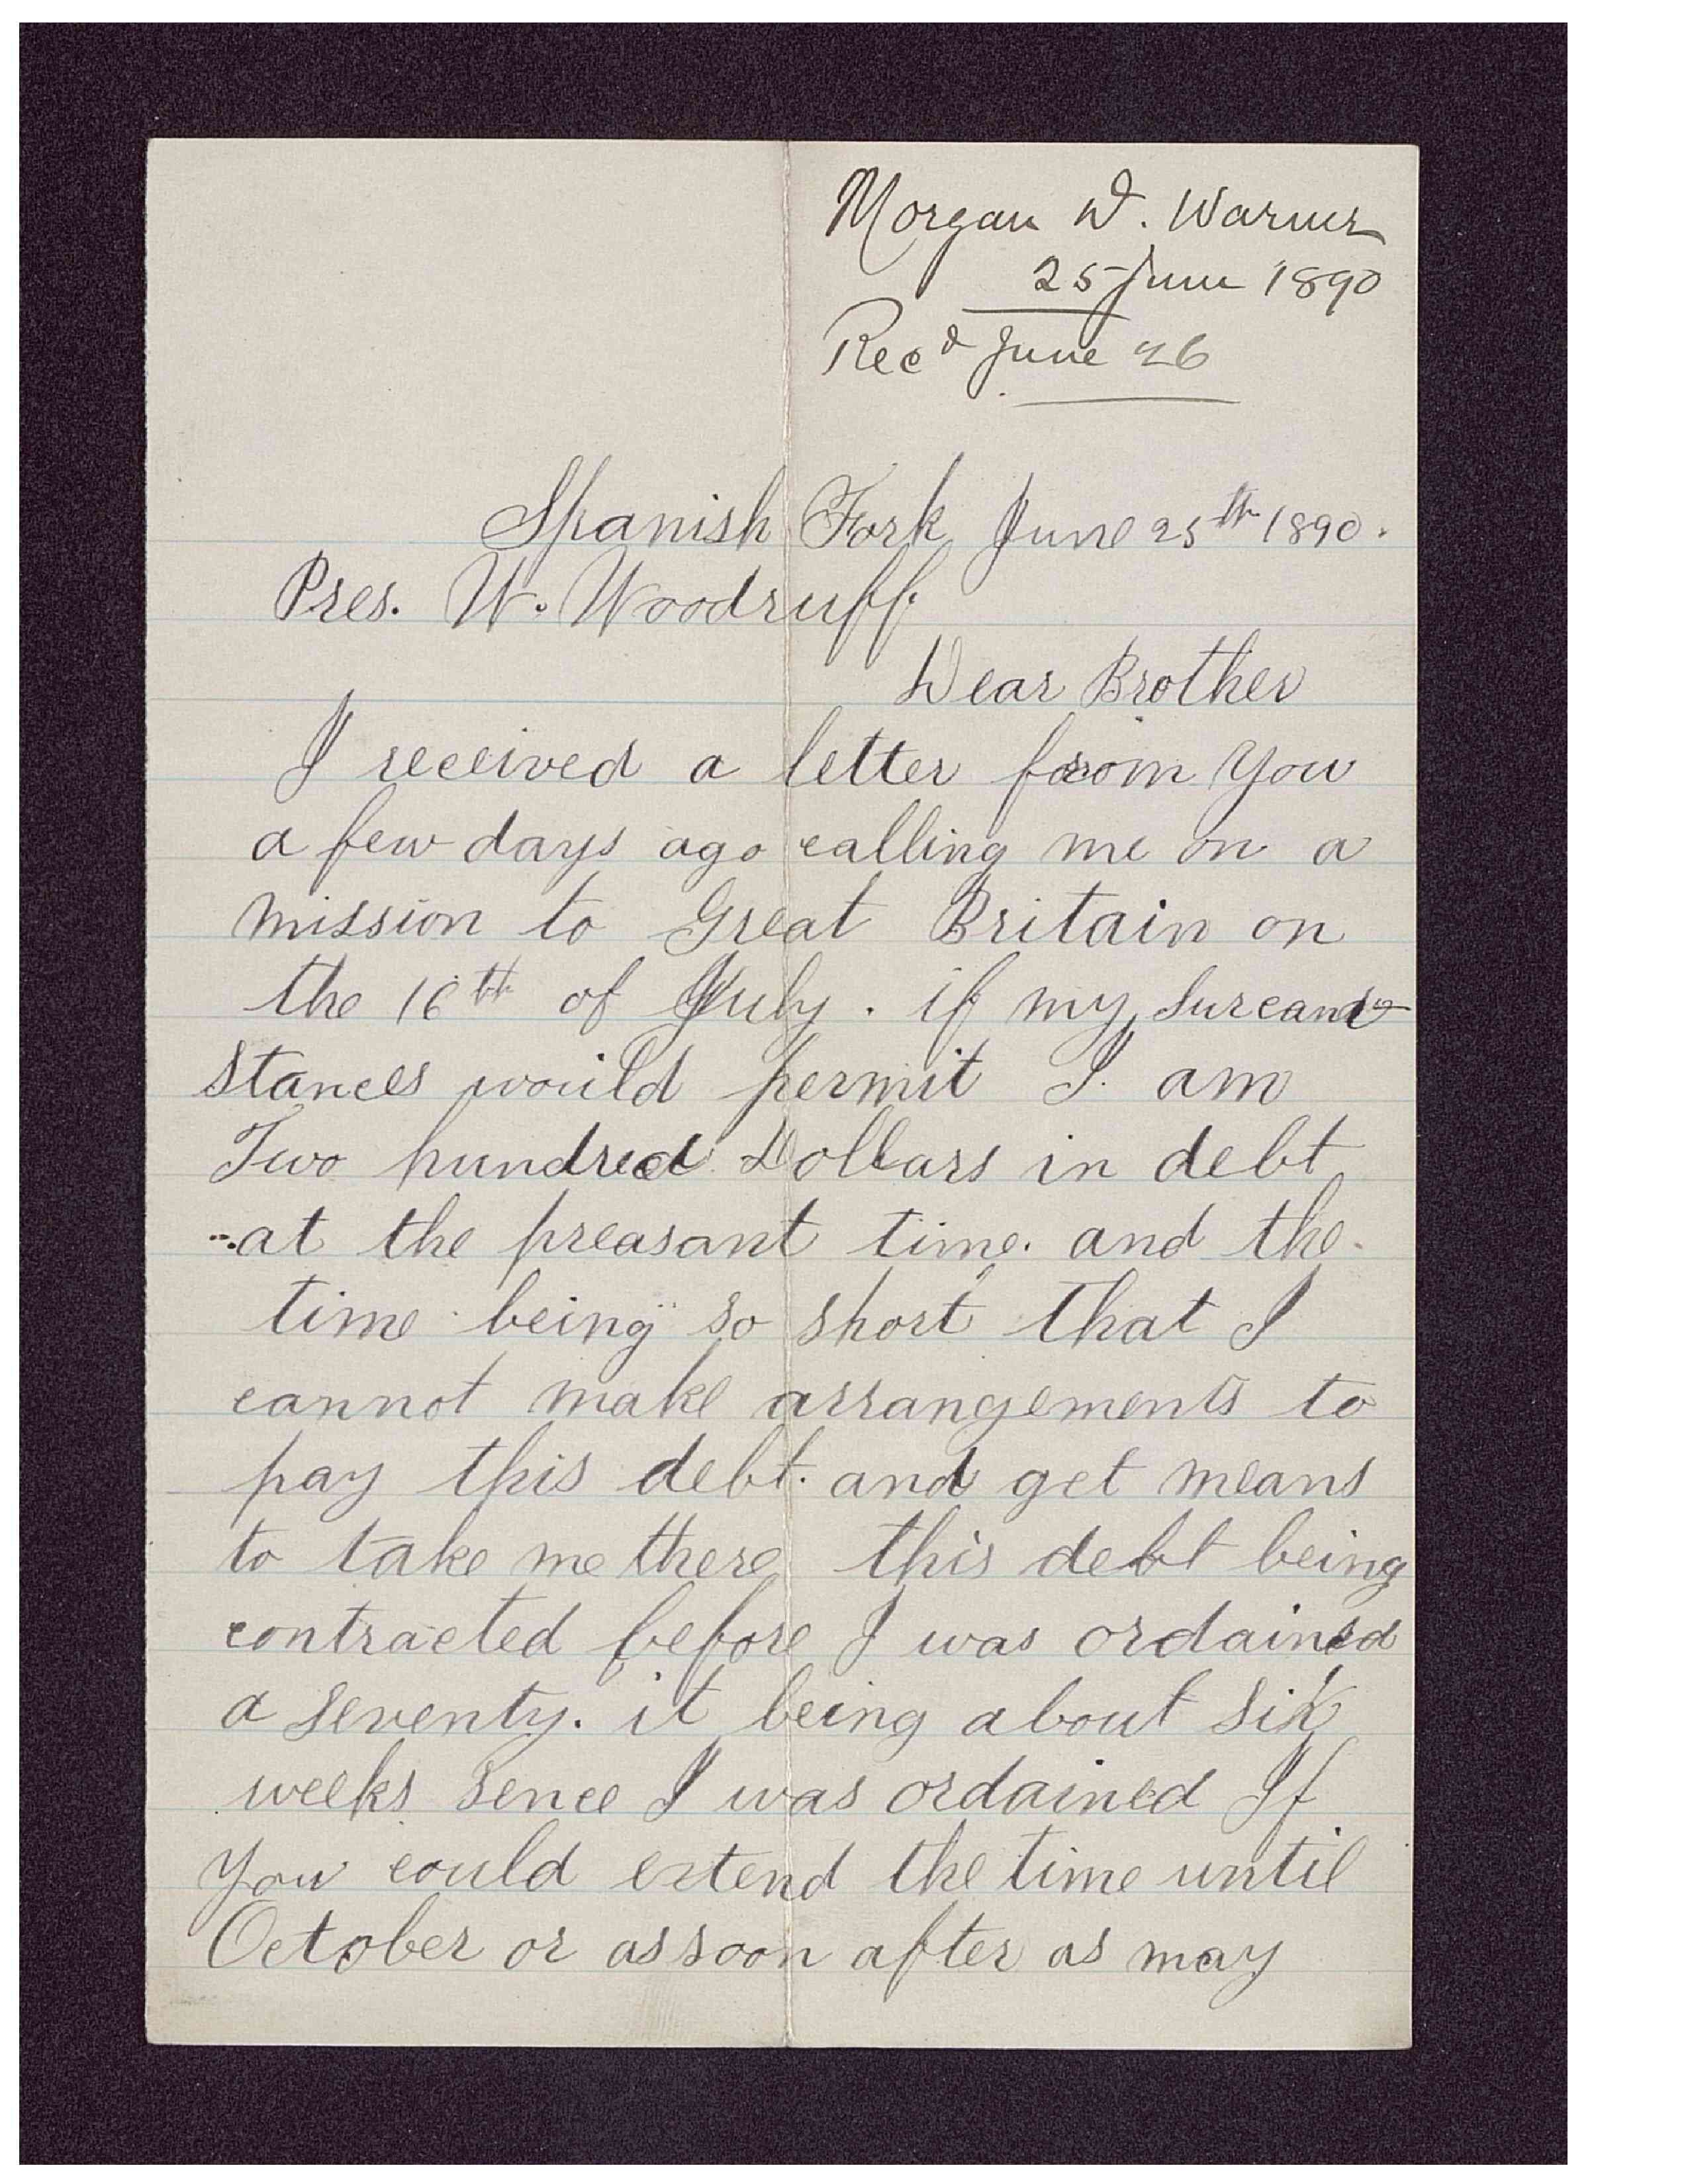 Morgan D. Warner
25 June 1890
Recd June 26
Spanish Fork June 25th 1890.
Pres. W. Woodruff.
Dear Brother
I received a letter from you
a few days ago calling me on a
mission to Great Britain on
the 16th of July. if my
stances would permit I. am
Two hundred Dollars in debt
at the preasant time. and the
time being so short that I
cannot make arrangements to
pay this debt. and get means
to take me there this debt being
contracted before I was ordained
a seventy. it being about six
weeks sence I was ordained If
you could extend the time until
October or as soon after as may